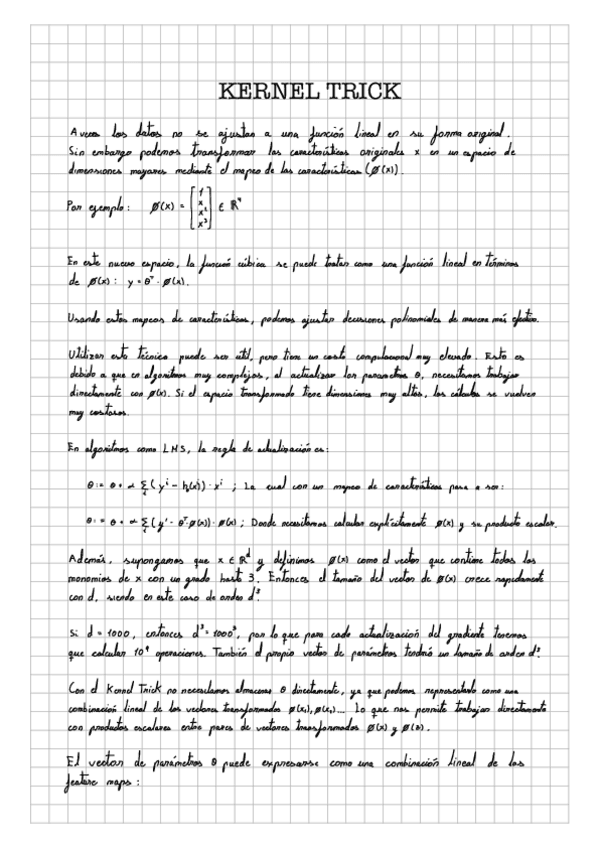 KERNEL TRICK
A veces los datos no se ajustan a una función lineal en su forma original.
Sin embargo podemos transformar las características originales x en un espacio de
dimensiones mayores mediante el mapeo de las características (Ø(x)).
Por ejemplo: Ø(x) = [1 x x² x³] ∈ ℝ⁴
En este nuevo espacio, la función cúbica se puede tratar como una función lineal en términos
de Ø(x): y = θᵀ · Ø(x).
Usando estos mapeos de características, podemos ajustar decisiones polinomiales de manera más efectiva.
Utilizar esta técnica puede ser útil, pero tiene un costo computacional muy elevado. Esto es
debido a que en algoritmos muy complejos, al actualizar los parametros θ, necesitamos trabajar
directamente con Ø(x). Si el espacio transformado tiene dimensiones muy altas, los cálculos se vuelven
muy costosos.
En algoritmos como LMS, la regla de actualización es:
θ := θ + α Σ (yⁱ - h(xⁱ)) · xⁱ ; La cual con un mapeo de características pasa a ser:
θ := θ + α Σ (yⁱ - θᵀ·Ø(x)) · Ø(x) ; Donde necesitamos calcular explícitamente Ø(x) y su producto escalar.
Además, supongamos que x ∈ ℝᵈ y definimos Ø(x) como el vector que contiene todos los
monomios de x con un grado hasta 3. Entonces el tamaño del vector de Ø(x) crece rapidamente
con d, siendo en este caso de orden d³.
Si d = 1000, entonces d³ = 1000³, por lo que para cada actualización del gradiente tenemos
que calcular 10⁹ operaciones. También el propio vector de parámetros tendrá un tamaño de orden d³.
Con el Kernel Trick no necesitamos almacenar θ directamente, ya que podemos representarlo como una
combinación lineal de los vectores transformados Ø(x₁), Ø(x₂)... Lo que nos permite trabajar directamente
con productos escalares entre pares de vectores transformados Ø(x) y Ø(z).
El vector de parámetros θ puede expresarse como una combinación lineal de los
feature maps :